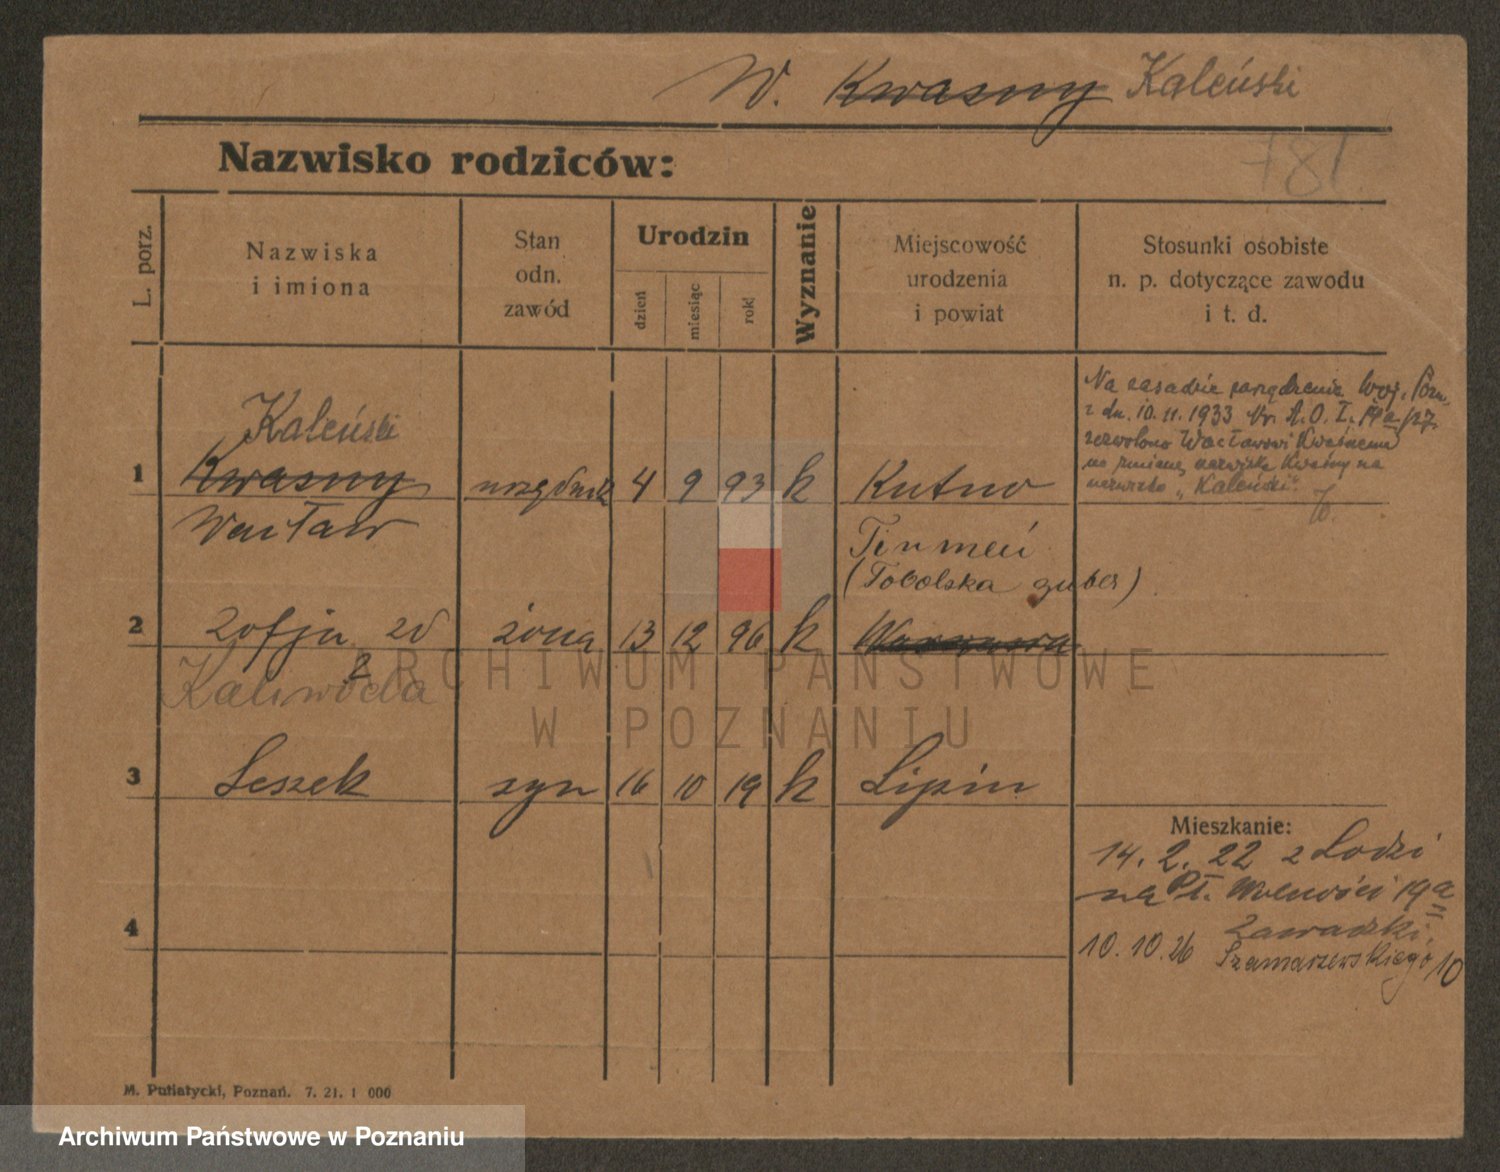 W. Kwasny Kaleński
781.
Nazwisko rodziców:
L. porz.
Nazwiska
i imiona
Stan
odn.
zawód
Urodzin
dzień
miesiąc
rok
Wyznanie
Miejscowość
urodzenia
i powiat
Stosunki osobiste
n. p. dotyczące zawodu
i t. d.
Na zasadzie zarządzenia Woj. Pozn.
z dn. 10.11.1933 Nr. A.O.I.
zezwolono Wacławowi Kwaśnemu
na zmianę nazwiska Kwaśny na
nazwisko „Kaleński"
Kaleński
1 Kwasny urzędnik 4 9 93 k Kutno
Wacław
Tiumeń
(Tobolska guber)
2 Zofja zd żona 13 12 96 k Warszawa
Kaliwoda
3 Leszek syn 16 10 19 k Lipin
Mieszkanie:
14. 2. 22 z Lodzi
na Pl. Wolności 19a
4
Zawadzki
10.10.26 Szamarzewskiego 10
M. Putiatycki, Poznań. 7. 21. 1 000
ARCHIWUM PAŃSTWOWE
W POZNANIU
Archiwum Państwowe w Poznaniu